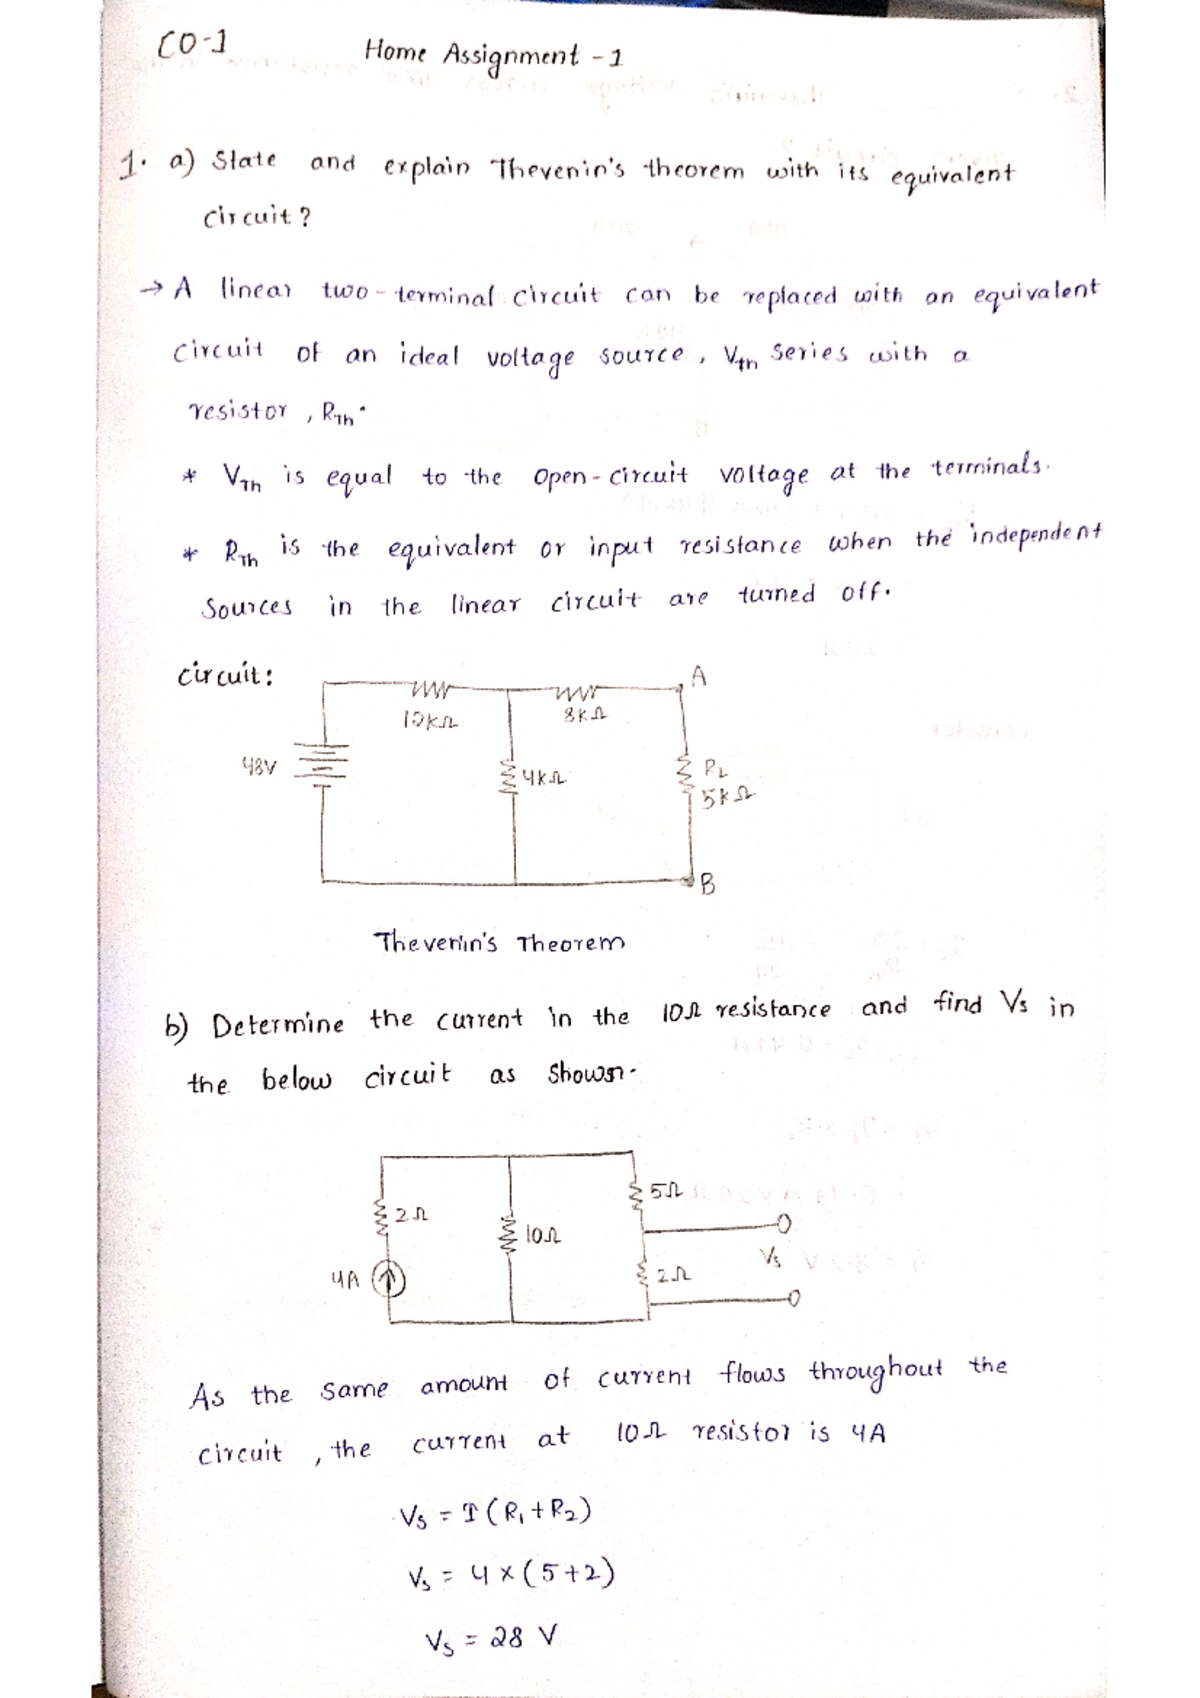 CO-1
Home Assignment - 1
1. a) State and explain Thevenin's theorem with its equivalent
circuit?
→ A linear two-terminal circuit can be replaced with an equivalent
circuit of an ideal voltage source, Vth series with a
resistor, RTh.
* VTh is equal to the open-circuit voltage at the terminals.
* RTh is the equivalent or input resistance when the independent
sources in the linear circuit are turned off.
circuit:
A
12kΩ
8kΩ
48V
4kΩ
RL
5kΩ
B
Thevenin's Theorem
b) Determine the current in the 10Ω resistance and find Vs in
the below circuit as shown.
5Ω
2Ω
10Ω
Vs
4A
2Ω
As the same amount of current flows throughout the
circuit, the current at 10Ω resistor is 4A
Vs = I (R1 + R2)
Vs = 4 × (5+2)
Vs = 28 V